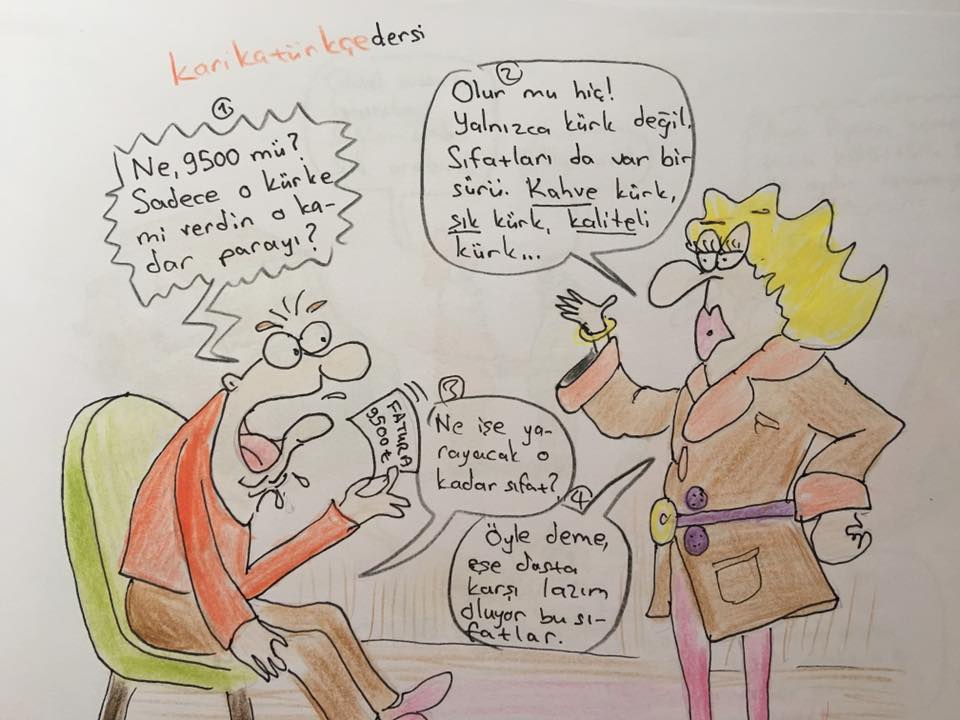 karikatürkçedersi
1
Ne, 9500 mü?
Sadece o kürke
mi verdin o ka-
dar parayı?
2
Olur mu hiç!
Yalnızca kürk değil.
Sıfatları da var bir
sürü. Kahve kürk,
şık kürk, kaliteli
kürk...
FATURA
9500 ₺
3
Ne işe ya-
rayacak o
kadar sıfat?
4
Öyle deme,
eşe dosta
karşı lazım
oluyor bu sı-
fatlar.